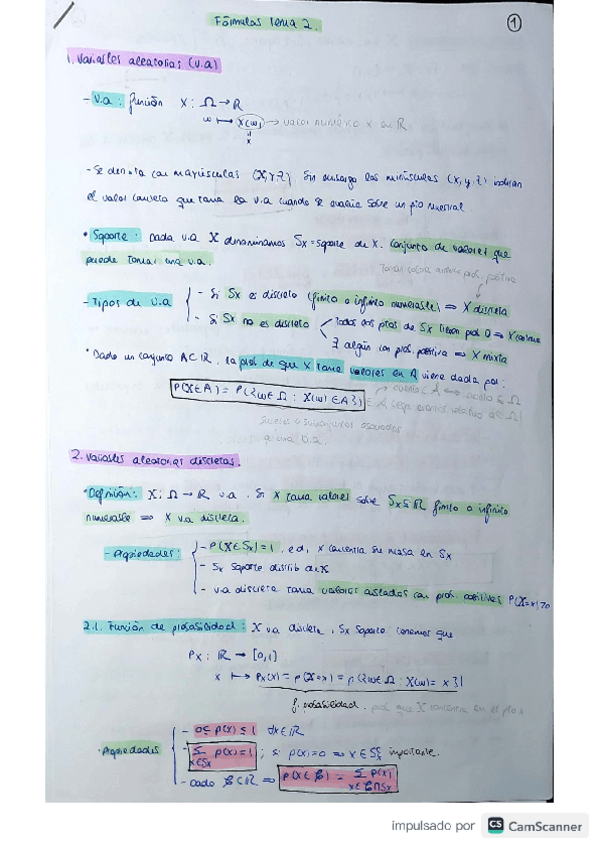 Fórmulas Tema 2.
1
1. Variables aleatorias (v.a)
- v.a : función X : Ω → R
ω ⟼ X(ω) → valor numérico x en R
x
- Se denota con mayúsculas (X, Y, Z). Sin embargo las minúsculas (x, y, z) indican
el valor concreto que toma la v.a cuando se evalúa sobre un pto muestral.
• Soporte : Dada v.a X denominamos Sx = soporte de X. Conjunto de valores que
puede tomar una v.a.
Toman valor prob. positiva
- Tipos de v.a
- Si Sx es discreto (finito o infinito numerable) ⇒ X discreta
- Si Sx no es discreto
Todos los ptos de Sx tienen prob 0 ⇒ X continua
∃ algún con prob. positiva ⇒ X mixta
• Dado un conjunto A⊂R, la prob de que X tome valores en A viene dada por:
P(X∈A) = P({ω∈Ω : X(ω)∈A})
a una v.a.
2. Variables aleatorias discretas.
• Definición : X : Ω → R v.a . Si X toma valores sobre Sx⊆R finito o infinito
numerable ⇒ X v.a discreta.
- Propiedades :
- P(X∈Sx) = 1 , e.d, X concentra su masa en Sx
- Sx soporte distrib de X
- v.a discreta toma valores aislados con prob. positivas P(X=x)>0
2.1. Función de probabilidad : X v.a discreta , Sx soporte tenemos que
Px : R → [0,1]
x ⟼ Px(x) = P(X=x) = P({ω∈Ω : X(ω) = x})
f. probabilidad. prob que X concentra en el pto x
• Propiedades
- 0≤ p(x) ≤ 1 ∀x∈R
- Σ p(x) = 1 ; si p(x)=0 ⇒ x∈Sx^c importante.
x∈Sx
- Dado B⊂R ⇒ P(X∈B) = Σ p(x)
x∈B∩Sx
impulsado por CS CamScanner